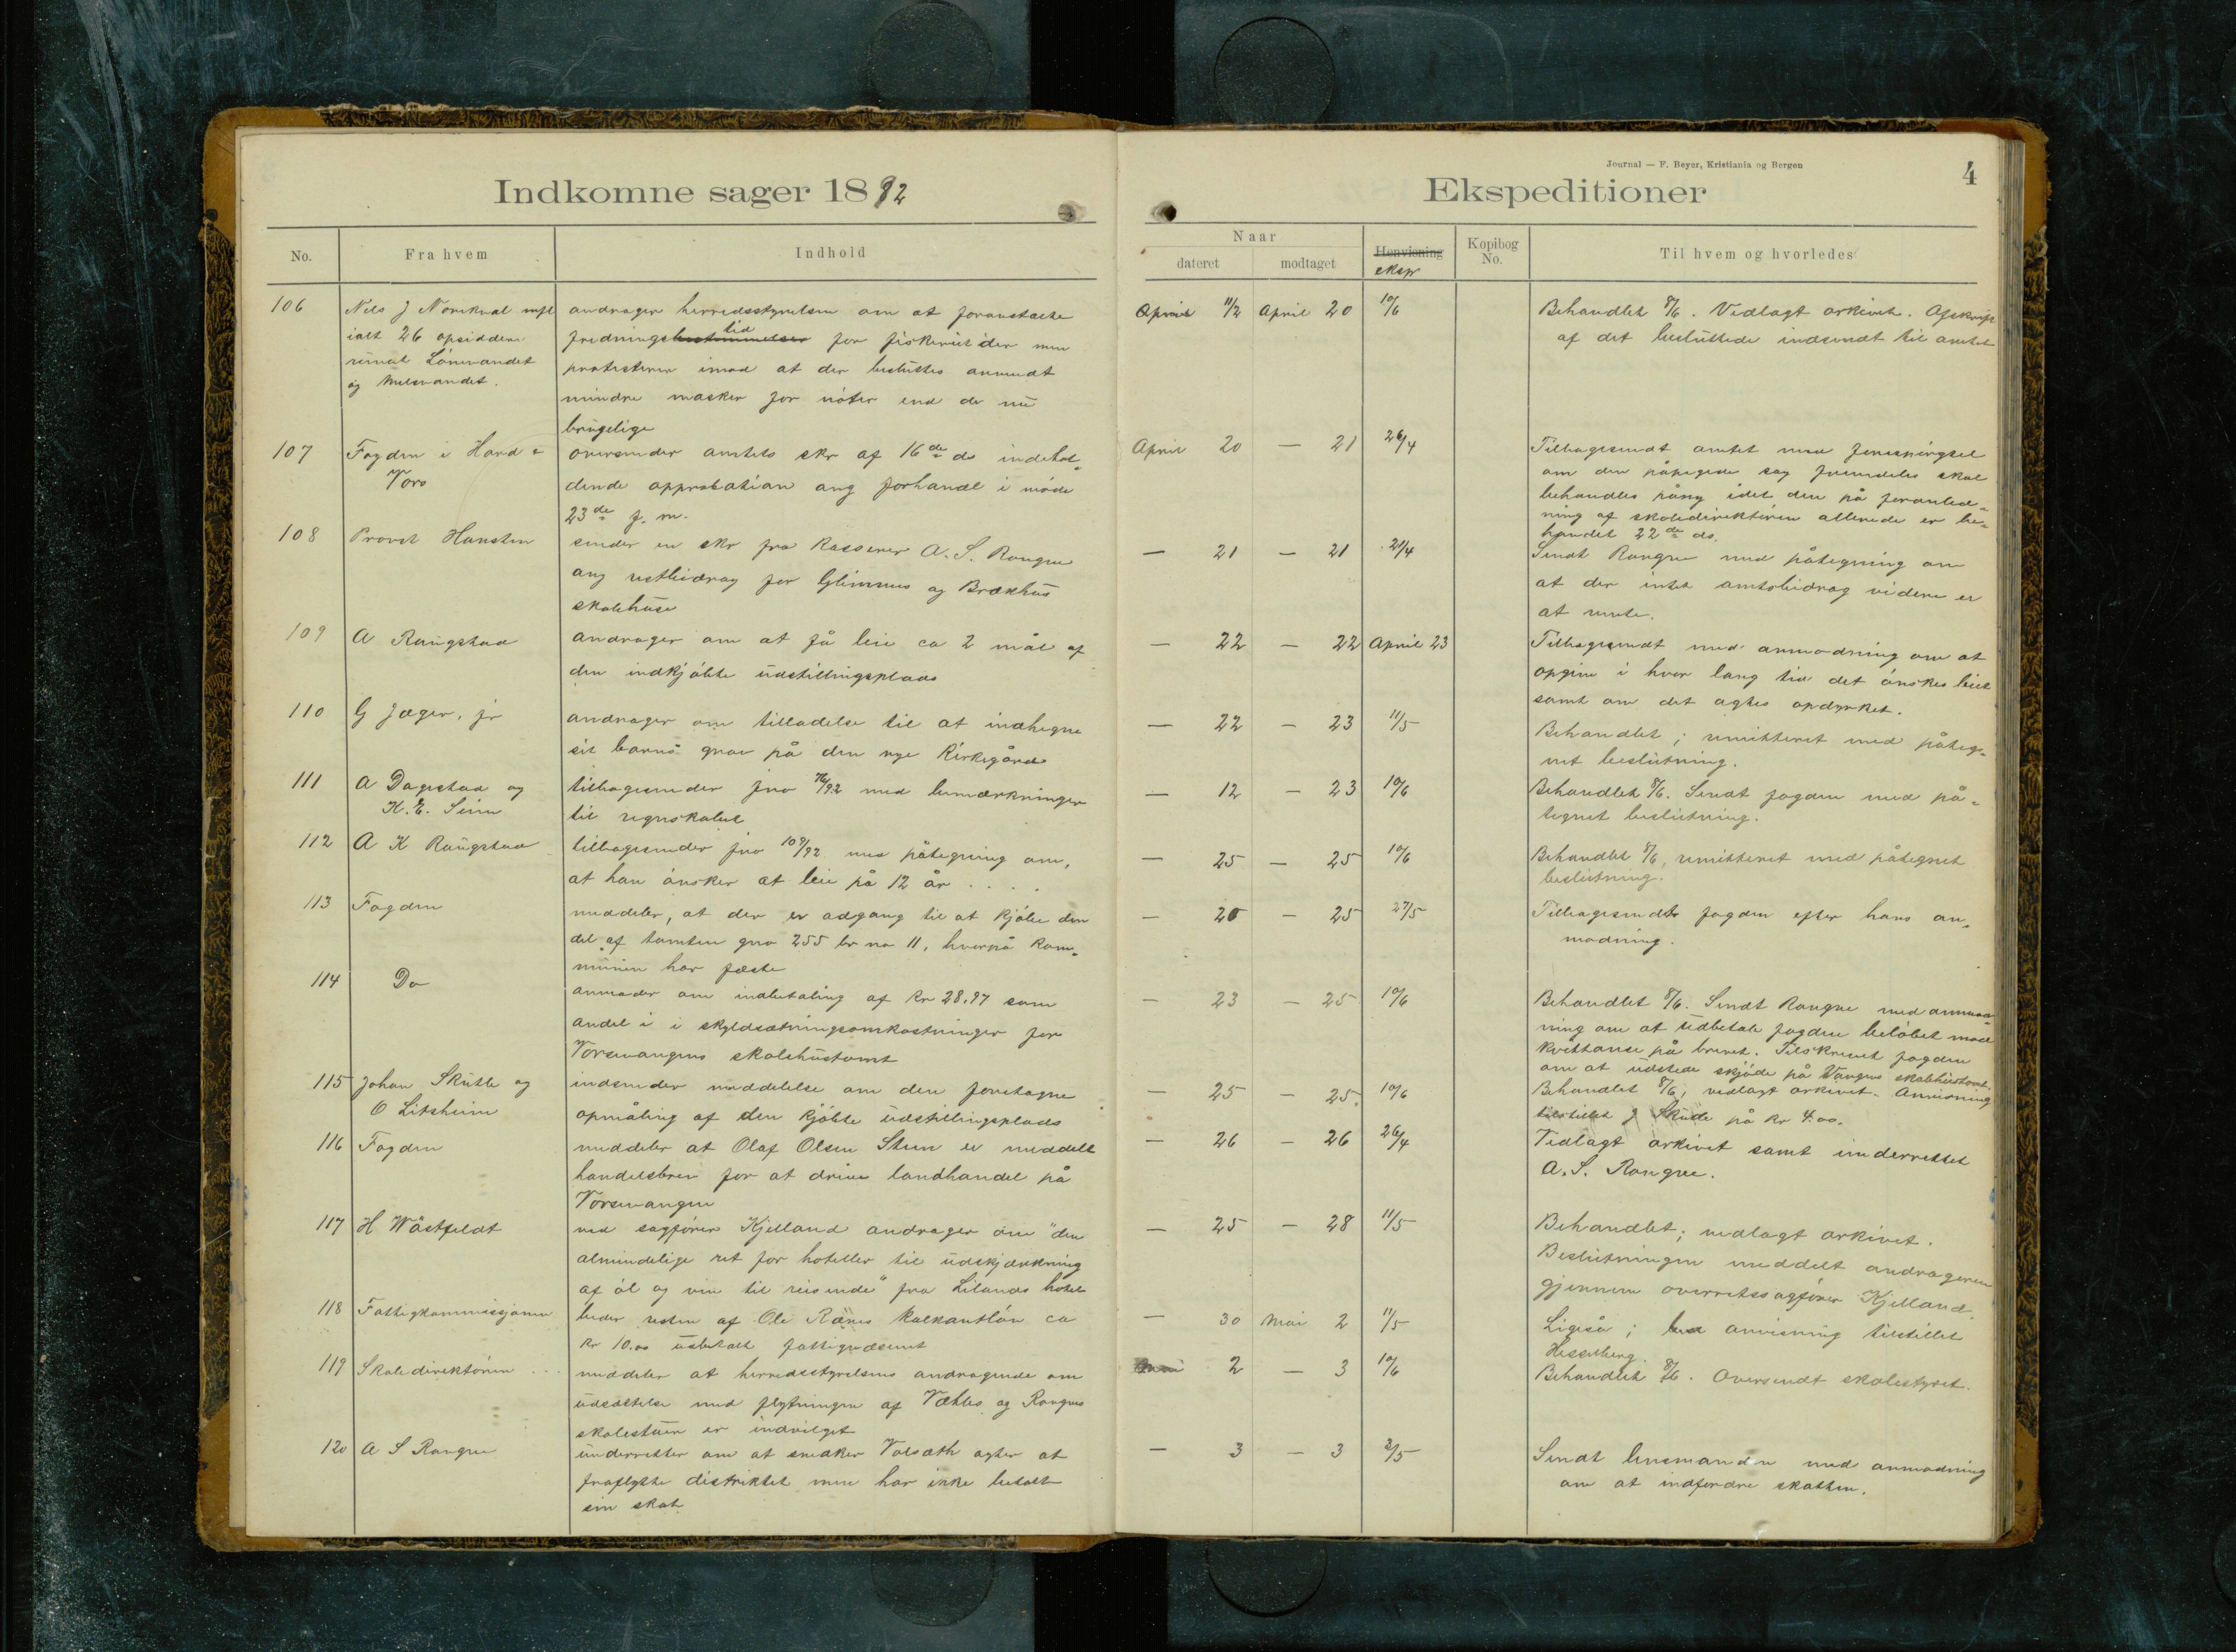 Journal — F. Beyer, Kristiania og Bergen
4
Indkomne sager 1892
Ekspeditioner
No.
Fra hvem
Indhold
Naar
dateret
modtaget
Henvisning
eksp
Kopibog
No.
Til hvem og hvorledes
106
Nils J Norekval mfl
ialt 26 opsiddere
rundt Lönevandet
og Melsvandet.
andrager herredsstyrelsen om at foranstalte
fredningsbestemmelser tid for fiskeriet der men
protesterer imod at der besluttes anvendt
mindre masker for nöter end de nu
brugelige
April 11/2 April 20 10/6
Behandlet 8/6. Vedlagt arkivet. Afskrift
af det besluttede indsendt til amtet
107
Fogden i Hard &
Vors
oversender amtets skr af 16de ds indehol-
dende approbation ang forhandl i møde
23de f. m.
April 20 — 21 26/4
Tilbagesendt amtet med forespörgsel
om den påpegede sag fremdeles skal
behandles påny idet den på foranled-
ning af skoledirektören allerede er be-
handlet 22de ds.
108
Provst Hansten
sender en skr fra kasserer A. S. Rongve
ang restbidrag for Glimmes og Brækhus
skolehuse
— 21 — 21 21/4
Sendt Rongve med påtegning om
at der intet amtsbidrag videre er
at vente.
109
A Raugstad
andrager om at få leie ca 2 mål af
den indkjöbte udstillingsplads
— 22 — 22 April 23
Tilbagesendt med anmodning om at
opgive i hvor lang tid det önskes leiet
samt om det agtes opdyrket.
110
G Jæger, jr
andrager om tilladelse til at indhegne
sit barns grav på den nye kirkegård
— 22 — 23 11/5
Behandlet; remitteret med påteg-
net beslutning.
111
A Dagestad og
K. E. Seim
tilbagesender jno 76/92 med bemærkninger
til regnskabet
— 12 — 23 10/6
Behandlet 8/6. Sendt fogden med på-
tegnet beslutning.
112
A K Raugstad
tilbagesender jno 109/92 med påtegning om,
at han önsker at leie på 12 år . . . .
— 25 — 25 10/6
Behandlet 8/6, remitteret med påtegnet
beslutning.
113
Fogden
meddeler, at der er adgang til at kjöbe den
del af tomten gno 255 br no 11, hvorpå kom-
munen har fæste
— 20 — 25 27/5
Tilbagesendt fogden efter hans an-
modning.
114
Do
anmoder om indbetaling af kr 28.97 som
andel i i skyldsætningsomkostninger for
Vossevangens skolehustomt
— 23 — 25 10/6
Behandlet 8/6. Sendt Rongve med anmod-
ning om at udbetale fogden belöbet mod
kvittance på brevet. Tilskrevet fogden
om at udstede skjöde på Vangens skolehustomt.
115
Johan Skutle og
O Litsheim
indsender meddelelse om den foretagne
opmåling af den kjöbte udstillingsplads
— 25 — 25. 10/6
Behandlet 8/6; vedlagt arkivet. Anvisning
tilstillet J Skutle på kr 4.00.
116
Fogden
meddeler at Olaf Olsen Steen er meddelt
handelsbrev for at drive landhandel på
Vossevangen
— 26 — 26 26/4
Vedlagt arkivet samt underrettet
A. S. Rongve.
117
H Wästfeldt
ved sagförer Kjelland andrager om "den
almindelige ret for hoteller til udskjænkning
af öl og vin til reisende" fra Lilands hotel
— 25 — 28 11/5
Behandlet; vedlagt arkivet.
Beslutningen meddelt andrageren
gjennem overretssagförer Kjelland.
118
Fattigkommissjonen
beder resten af Ole Rænes kalkantlön ca
kr 10.00 udbetalt fattigvæsenet
— 30 Mai 2 11/5
Ligeså; anvisning tilstillet
Hesselberg.
119
Skoledirektören
meddeler at herredsstyrelsens andragende om
udsættelse med flytningen af Væthes og Rongves
skolestuer er indvilget
Mai 2 — 3 10/6
Behandlet 8/6. Oversendt skolestyret.
120
A S Rongve
underretter om at snedker Volsæth agter at
fraflytte distriktet men har ikke betalt
sin skat
— 3 — 3 3/5
Sendt lensmanden med anmodning
om at indfordre skatten.